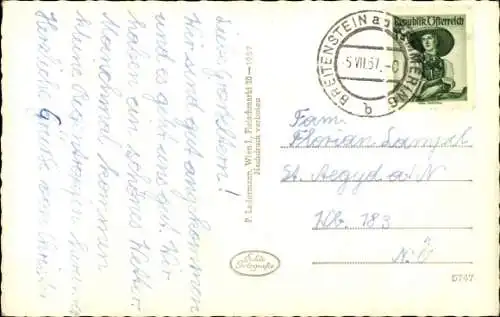 Liebe Großeltern!
Wir sind gut angekommen
und es geht uns gut. Wir
haben ein schönes Wetter
Manchmal kommen
kleine Regen
Herzliche Grüße von
P. Ledermann, Wien I., Fleischmarkt 20 — 1957
Nachdruck verboten
Echte
Fotografie
BREITENSTEIN a. SEMMERING
5.VII.57.-8
b
Republik Österreich
Fam.
Florian Lampl
St. Aegyd a. N
Nb. 183
N.Ö
5747